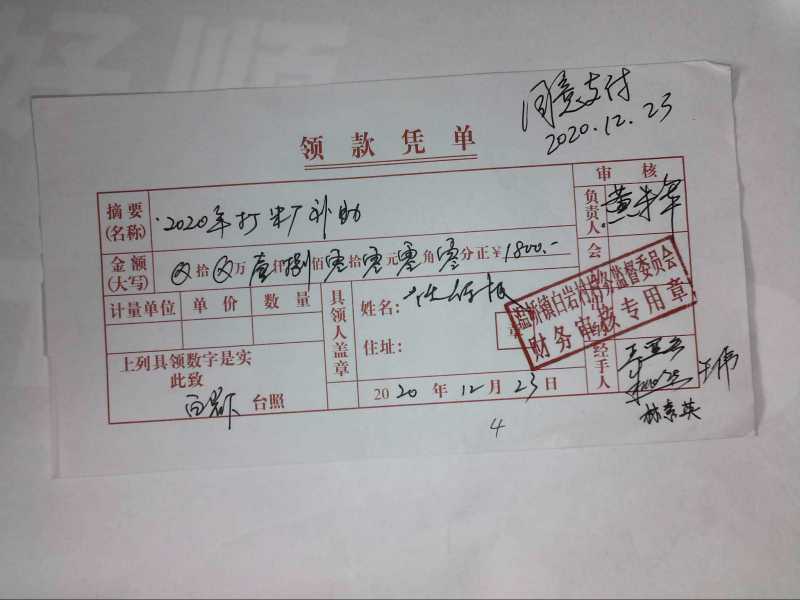 同意支付
2020.12.23
领款凭单
审核
摘要(名称) 2020年打米厂补助
负责人
金额(大写) ⊗拾⊗万壹仟捌佰零拾零元零角零分正¥1800.-
会
计量单位 单价 数量
具领人盖章
姓名:
章
住址:
村务监督委员会
财务审核专用章
上列具领数字是实
此致
台照
2020年12月23日
经手人
王伟
林素英
4